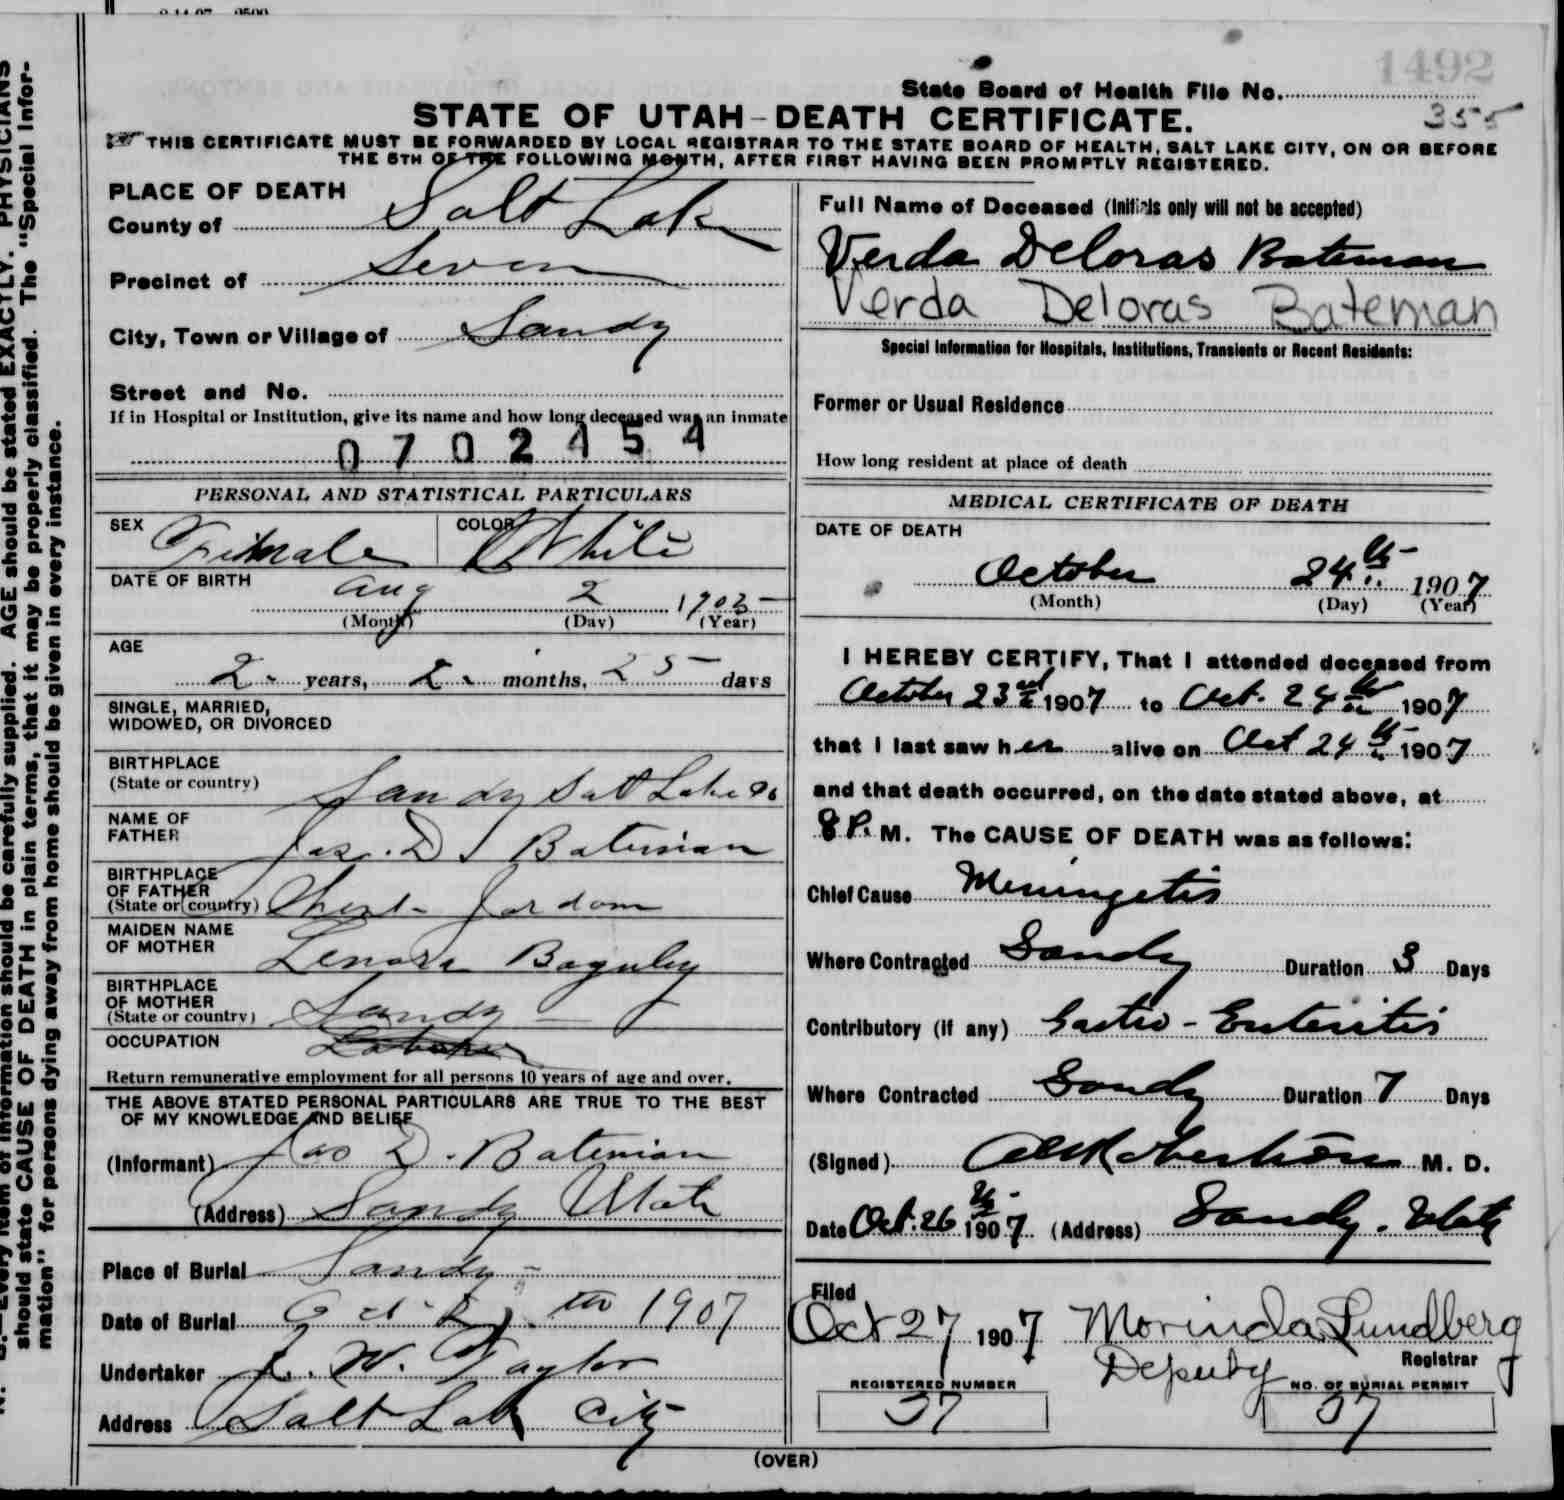 1492
State Board of Health File No.
355
STATE OF UTAH-DEATH CERTIFICATE.
THIS CERTIFICATE MUST BE FORWARDED BY LOCAL REGISTRAR TO THE STATE BOARD OF HEALTH, SALT LAKE CITY, ON OR BEFORE
THE 5TH OF THE FOLLOWING MONTH, AFTER FIRST HAVING BEEN PROMPTLY REGISTERED.
PLACE OF DEATH
County of Salt Lake
Precinct of Seven
City, Town or Village of Sandy
Street and No.
If in Hospital or Institution, give its name and how long deceased was an inmate
0702454
PERSONAL AND STATISTICAL PARTICULARS
SEX Female COLOR White
DATE OF BIRTH Aug 2 1905
(Month) (Day) (Year)
AGE
2 years, 2 months, 25 days
SINGLE, MARRIED,
WIDOWED, OR DIVORCED
BIRTHPLACE
(State or country) Sandy Salt Lake Co
NAME OF
FATHER Jas. D Bateman
BIRTHPLACE
OF FATHER
(State or country) West Jordan
MAIDEN NAME
OF MOTHER Lenora Baguley
BIRTHPLACE
OF MOTHER
(State or country) Sandy
OCCUPATION
Return remunerative employment for all persons 10 years of age and over.
THE ABOVE STATED PERSONAL PARTICULARS ARE TRUE TO THE BEST
OF MY KNOWLEDGE AND BELIEF
(Informant) Jas D. Bateman
(Address) Sandy Utah
Place of Burial Sandy
Date of Burial Oct th 1907
Undertaker W. Taylor
Address Salt Lake City
Full Name of Deceased (Initials only will not be accepted)
Verda Deloras Bateman
Verda Deloras Bateman
Special Information for Hospitals, Institutions, Transients or Recent Residents:
Former or Usual Residence
How long resident at place of death
MEDICAL CERTIFICATE OF DEATH
DATE OF DEATH
October 24th 1907
(Month) (Day) (Year)
I HEREBY CERTIFY, That I attended deceased from
October 23rd 1907 to Oct. 24th 1907
that I last saw her alive on Oct 24th 1907
and that death occurred, on the date stated above, at
8 P. M. The CAUSE OF DEATH was as follows:
Chief Cause Meningetis
Where Contracted Sandy Duration 3 Days
Contributory (if any) Gastro-Enteritis
Where Contracted Sandy Duration 7 Days
(Signed) Robertson M. D.
Date Oct. 26th 1907 (Address) Sandy. Utah
Filed
Oct 27 1907 Morinda Lundberg
Deputy Registrar
REGISTERED NUMBER NO. OF BURIAL PERMIT
37 37
(OVER)
should state CAUSE OF DEATH in plain terms, that it may be properly classified. The "Special Infor-
mation" for persons dying away from home should be given in every instance.